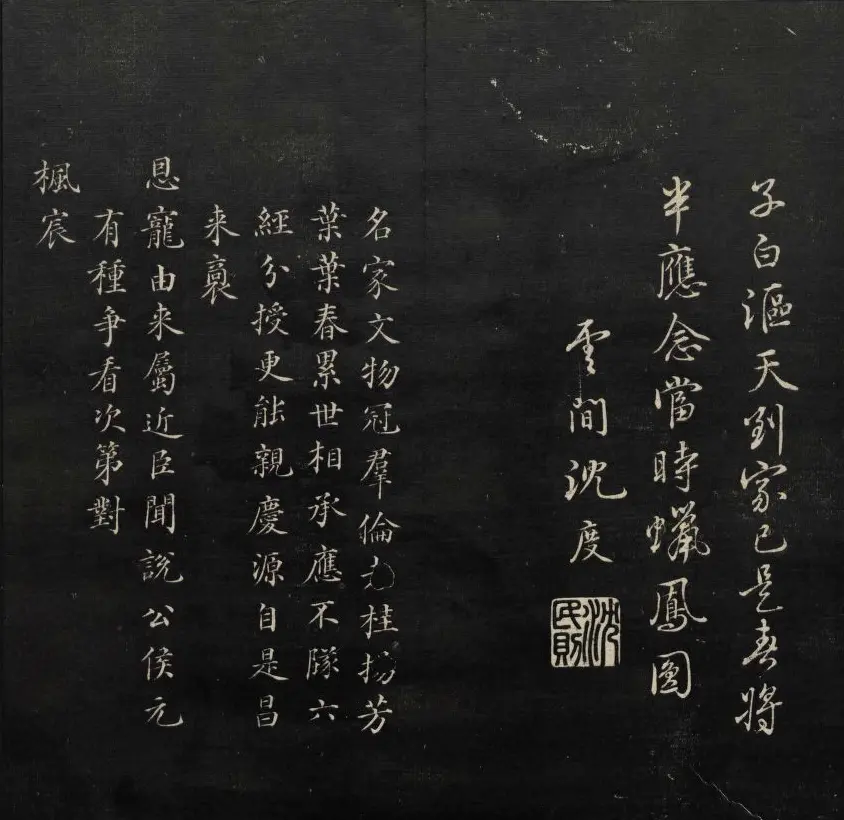 子白漚天到家已是春將
半應念當時蠟鳳圖
雲間沈度
沈民則
名家文物冠羣倫桂揚芳
葉葉春累世相承應不隊六
經分授更能親慶源自是昌
来裔
恩寵由来屬近臣聞說公侯元
有種争看次第對
楓宸